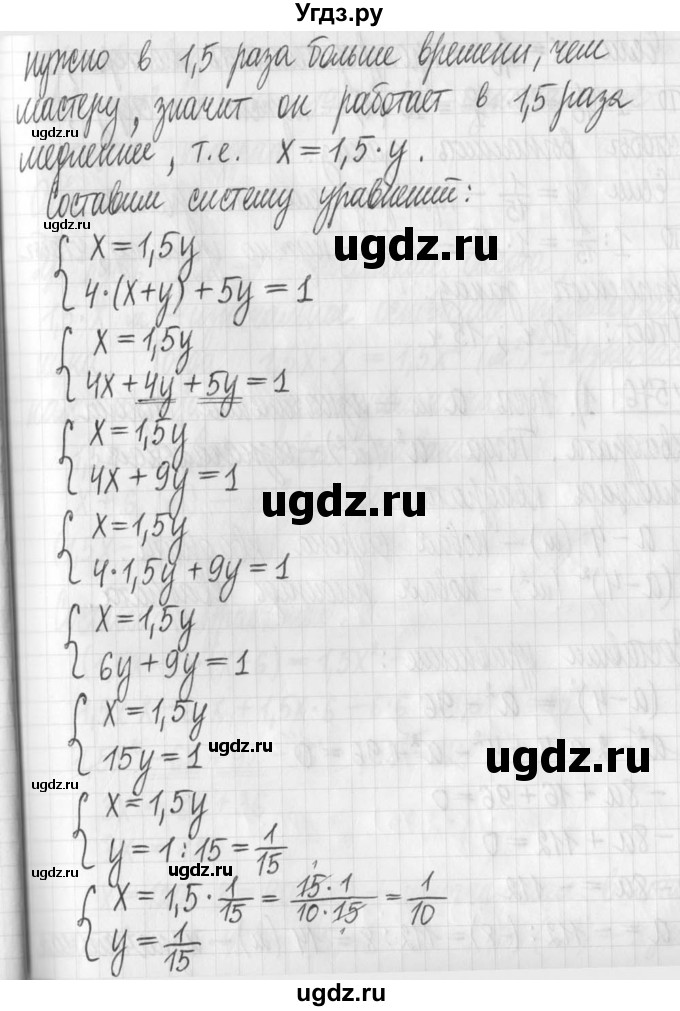 Угдз.ру
нужно в 1,5 раза больше времени, чем
мастеру, значит он работает в 1,5 раза
медленнее, т.е. x = 1,5 · y .
Составим систему уравнений:
ugdz.ru
x = 1,5y
ugdz.ru
4·(x+y) + 5y = 1
x = 1,5y
4x + 4y + 5y = 1
x = 1,5y
4x + 9y = 1
ugdz.ru
x = 1,5y
4·1,5y + 9y = 1
x = 1,5y
6y + 9y = 1
x = 1,5y
ugdz.ru
15y = 1
ugdz.ru
ugdz.ru
x = 1,5y
y = 1 : 15 = 1/15
ugdz.ru
x = 1,5 · 1/15 = 15·1/10·15 = 1/10
y = 1/15
ugdz.ru
ugdz.ru